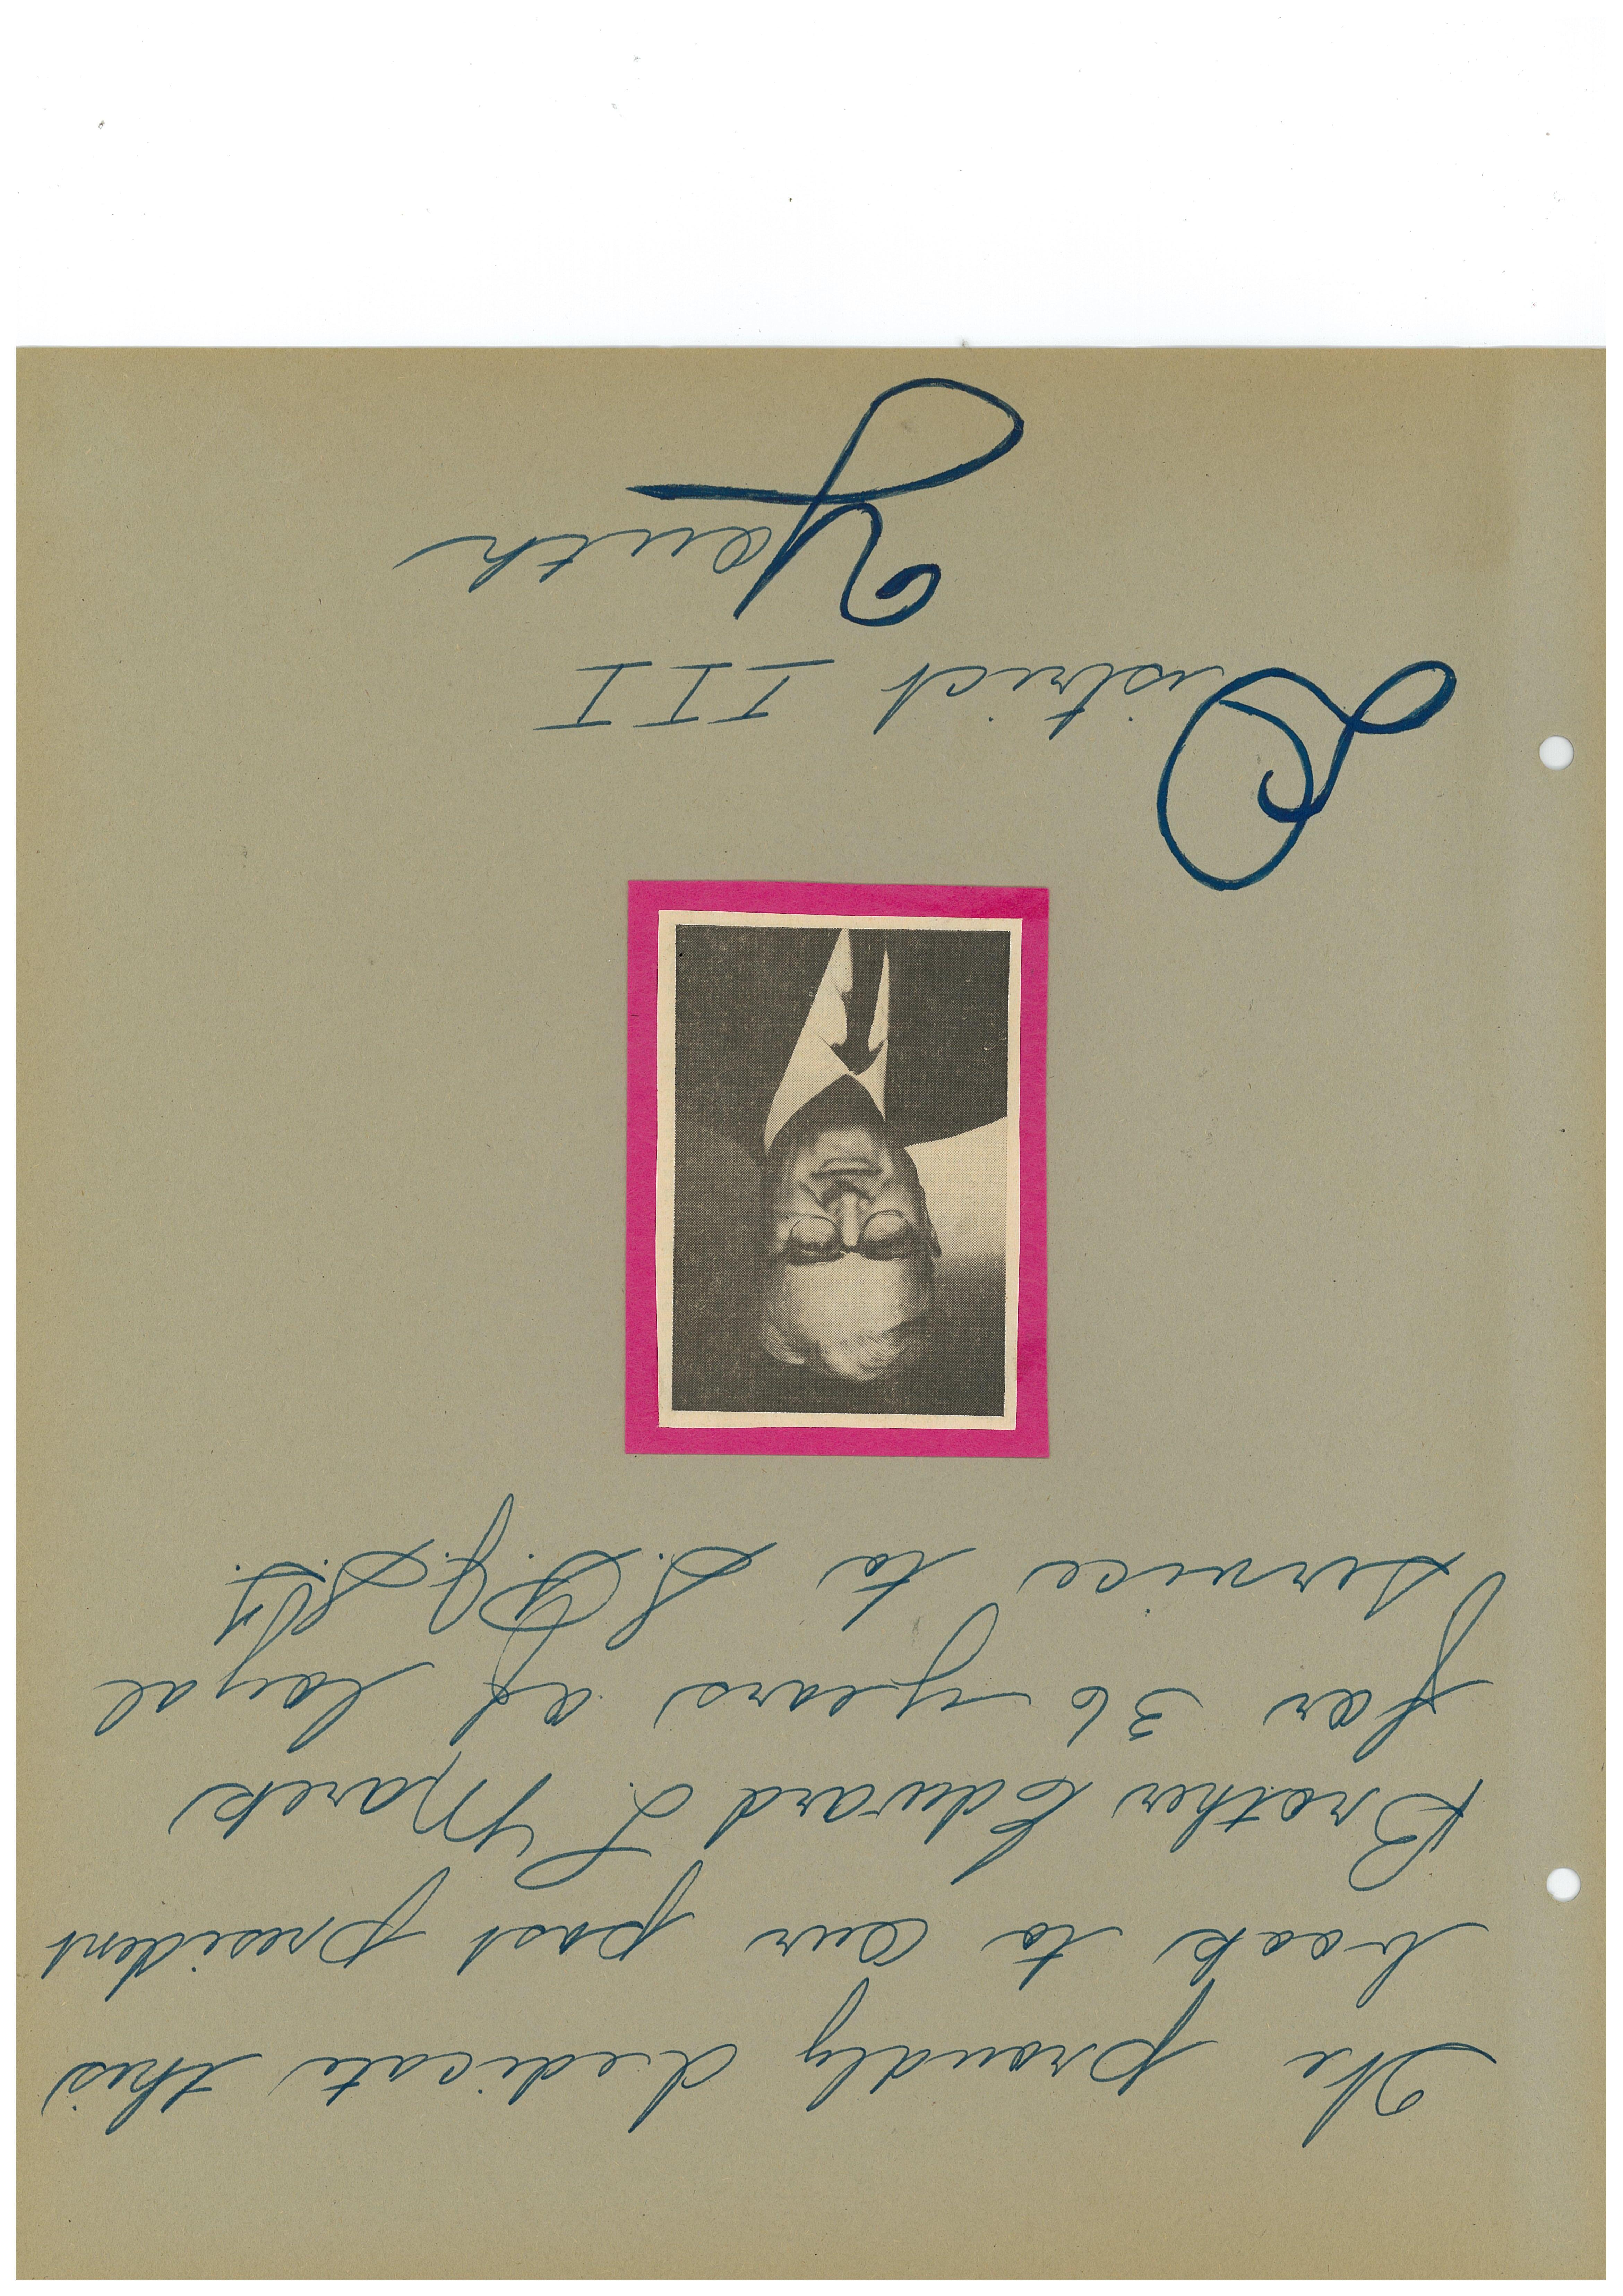 We proudly dedicate this
book to our past president
Brother Edward L. Marek
for 36 years of loyal
service to S.P.J.S.T.
District III
Youth